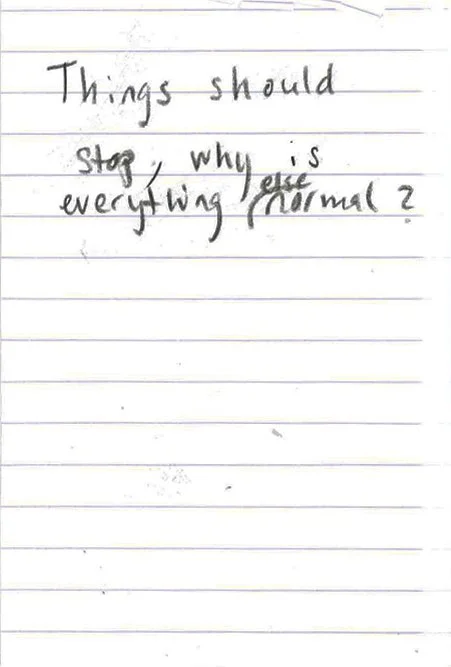 Things should
stop, why is
everything else normal?